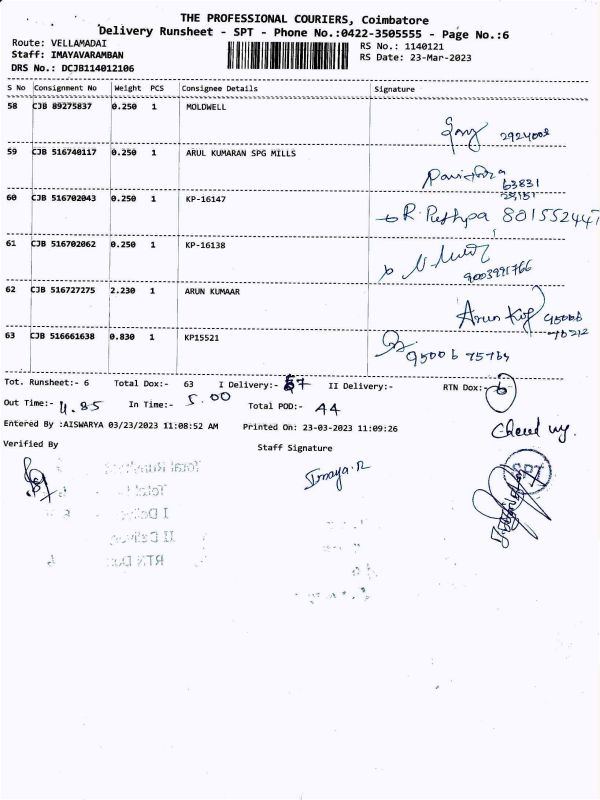 THE PROFESSIONAL COURIERS, Coimbatore
Delivery Runsheet - SPT - Phone No.:0422-3505555 - Page No.:6
Route: VELLAMADAI
RS No.: 1140121
Staff: IMAYAVARAMBAN
RS Date: 23-Mar-2023
DRS No.: DCJB114012106
S No Consignment No Weight PCS Consignee Details Signature
58 CJB 89275837 0.250 1 MOLDWELL
59 CJB 516740117 0.250 1 ARUL KUMARAN SPG MILLS
63831
60 CJB 516702043 0.250 1 KP-16147
R. Pushpa 801552447
61 CJB 516702062 0.250 1 KP-16138
9003991766
62 CJB 516727275 2.230 1 ARUN KUMAAR
Arun
95006
63 CJB 516661638 0.830 1 KP15521
95006 75764
Tot. Runsheet:- 6 Total Dox:- 63 I Delivery:- 57 II Delivery:- RTN Dox:- 6
Out Time:- 11.85 In Time:- 5.00 Total POD:- 44
Entered By :AISWARYA 03/23/2023 11:08:52 AM Printed On: 23-03-2023 11:09:26
Verified By Staff Signature
Imaya.R
SPT